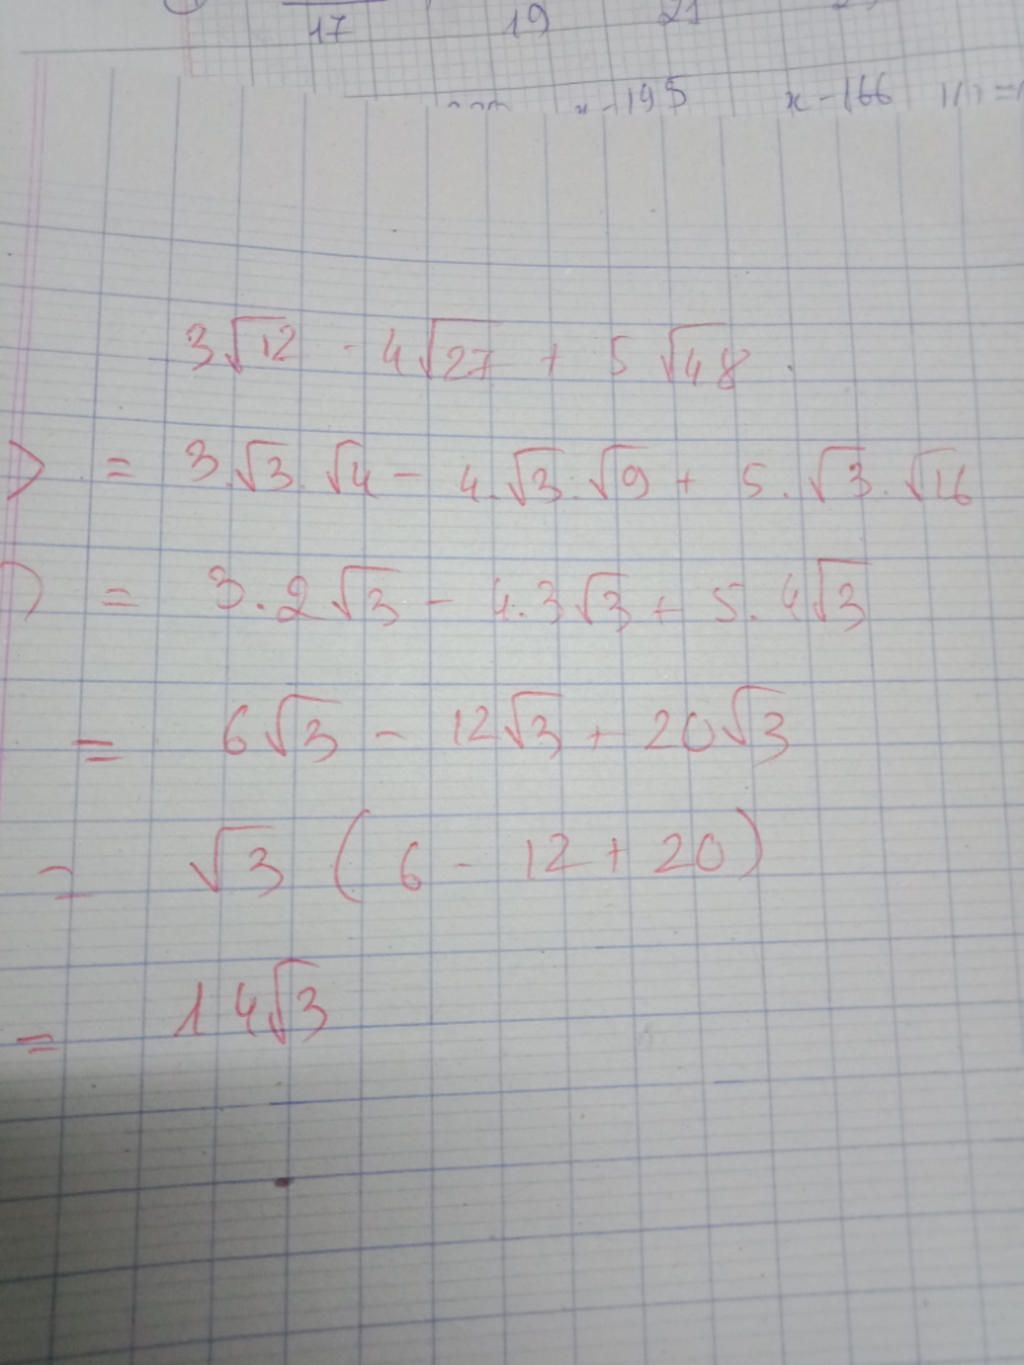 17 19 21
x-195 x-166
3√12 - 4√27 + 5√48
= 3.√3.√4 - 4.√3.√9 + 5.√3.√16
= 3.2√3 - 4.3√3 + 5.4√3
= 6√3 - 12√3 + 20√3
= √3 (6 - 12 + 20)
= 14√3